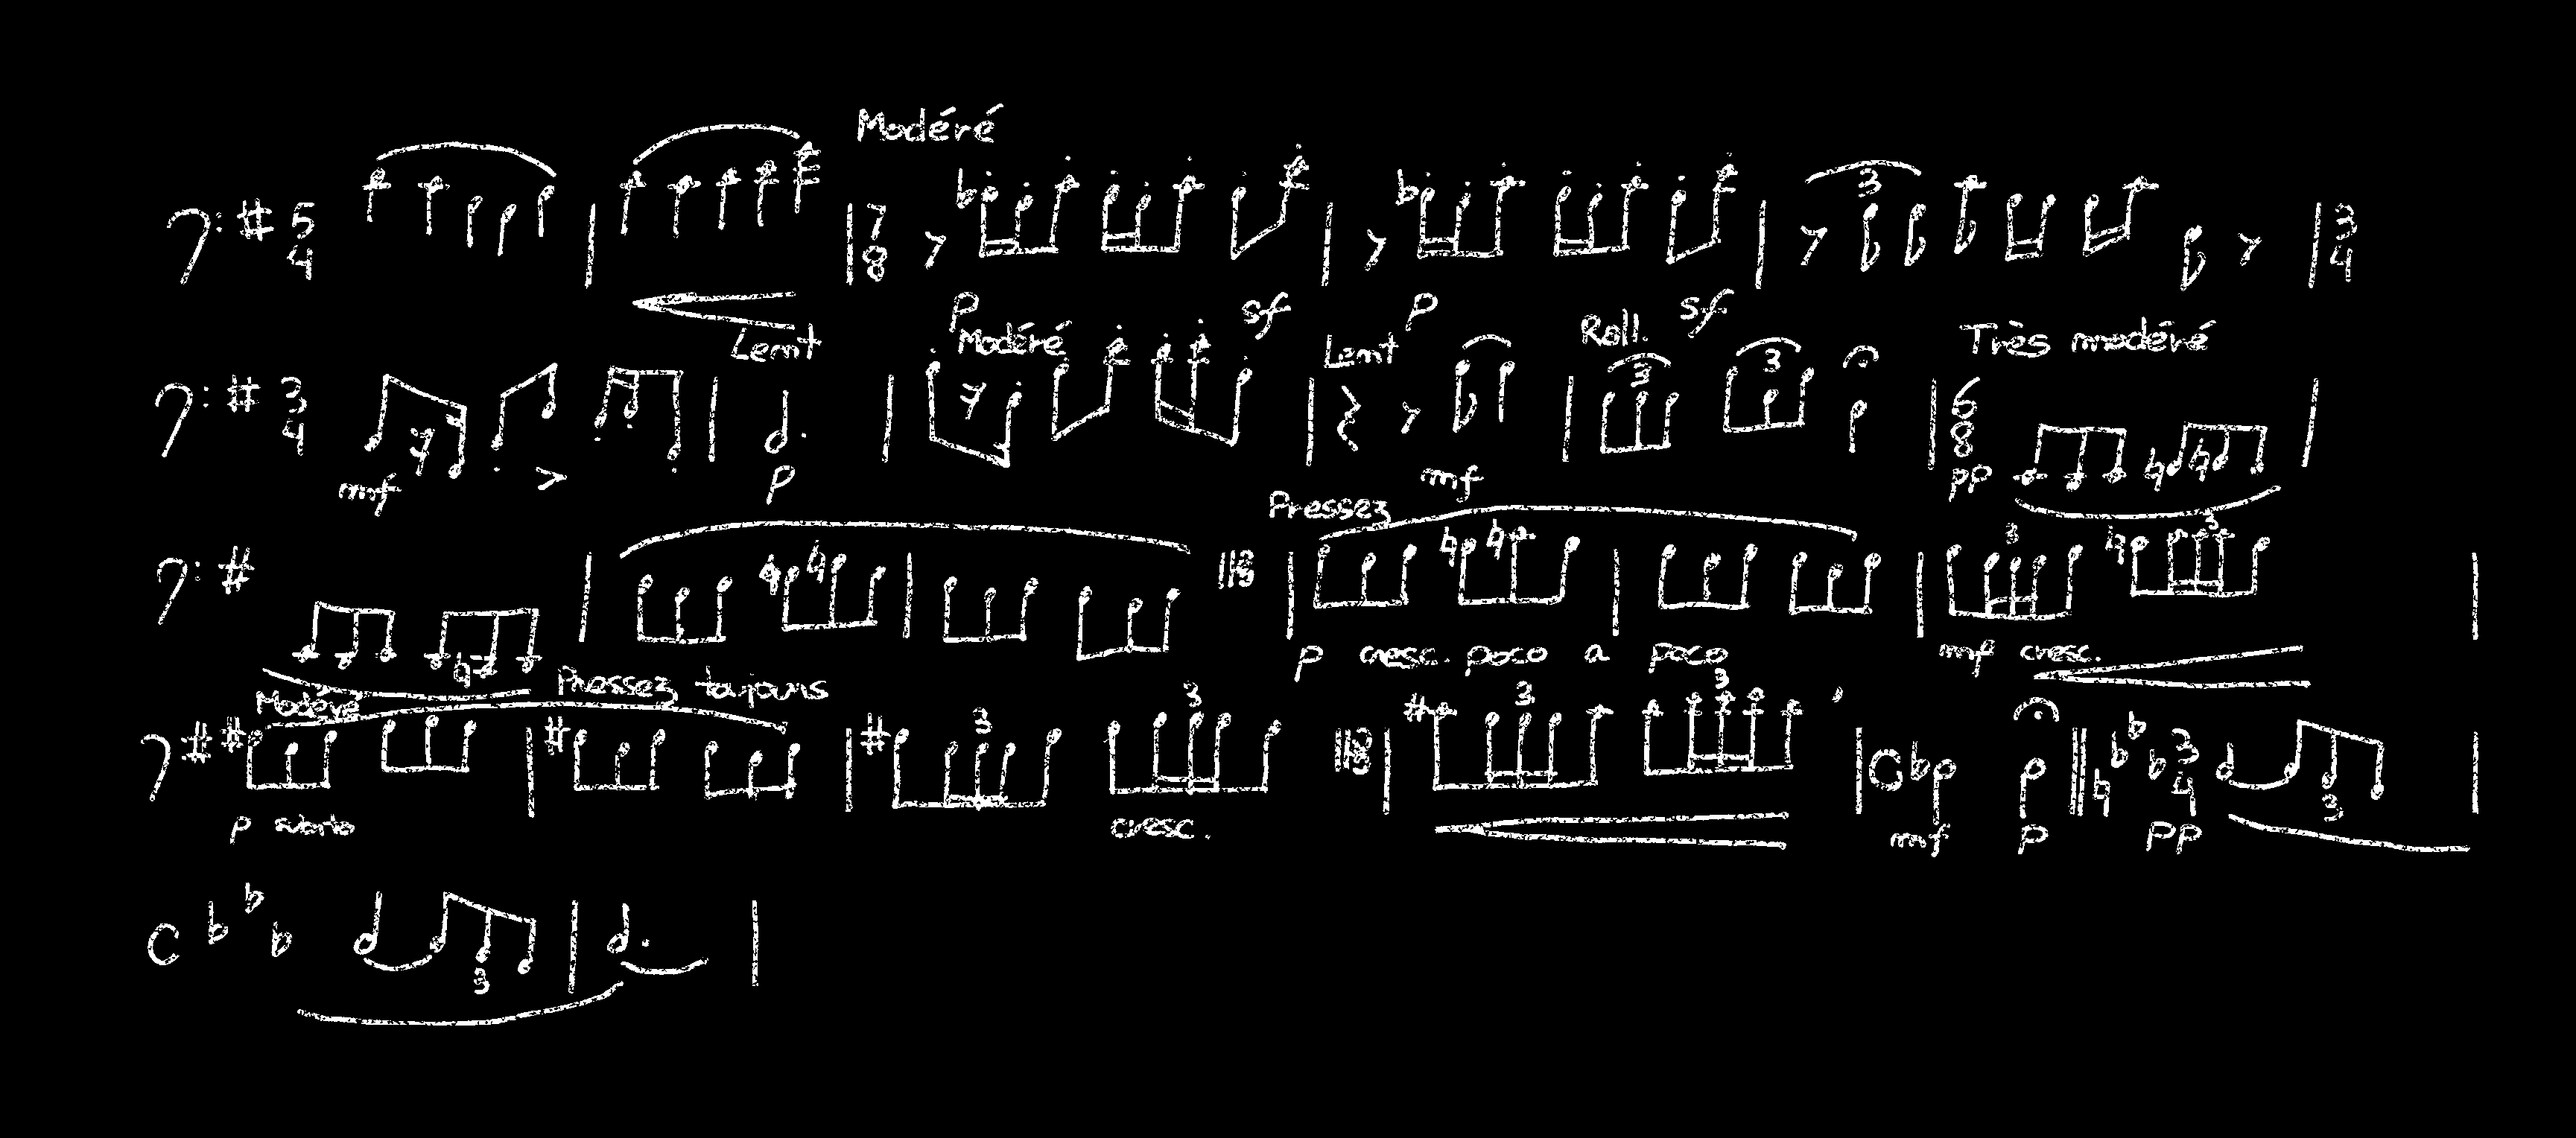 Modéré
5 4 7 8 3 3 4
p sf p sf
Lemt Modéré Lemt Rall. Très modéré
3 4 3 3 6 8
mf p mf pp
Pressez
3 3
p cresc. poco a poco mf cresc.
Modéré Pressez toujours
3 3 3 3 3 4
p subito cresc. mf p pp 3
3